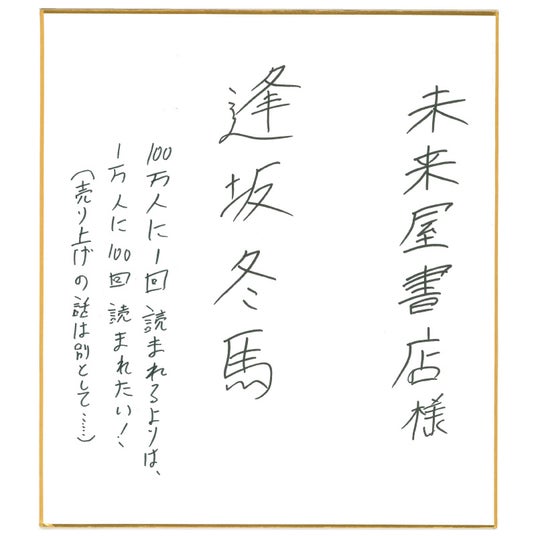 未来屋書店様
逢坂冬馬
100万人に1回読まれるよりは、
1万人に100回読まれたい!
(売り上げの話は別として……)